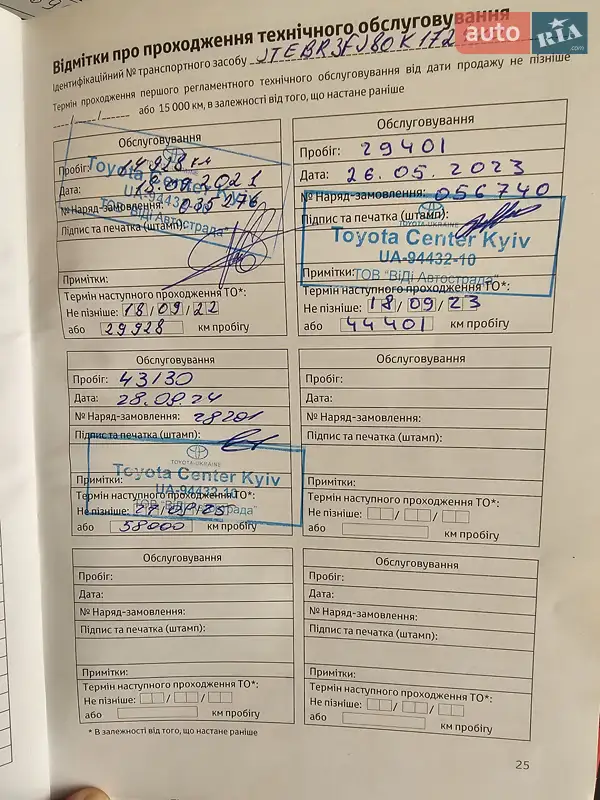 Відмітки про проходження технічного обслуговування
auto RIA .com
Ідентифікаційний № транспортного засобу JTEBR3FJ80K172
Термін проходження першого регламентного технічного обслуговування від дати продажу не пізніше
/ / або 15 000 км, в залежності від того, що настане раніше
Обслуговування
Пробіг: 14928 км
Дата: 18.09.2021
№ Наряд-замовлення: 035276
Підпис та печатка (штамп):
Toyota Center Kyiv
UA-94432-10
ТОВ "ВіДі Автострада"
Примітки:
Термін наступного проходження ТО*:
Не пізніше: 18/09/22
або 29928 км пробігу
Обслуговування
Пробіг: 29401
Дата: 26.05.2023
№ Наряд-замовлення: 056740
Підпис та печатка (штамп):
TOYOTA-UKRAINE
Toyota Center Kyiv
UA-94432-10
Примітки:
ТОВ "ВіДі Автострада"
Термін наступного проходження ТО*:
Не пізніше: 18/09/23
або 44401 км пробігу
Обслуговування
Пробіг: 43130
Дата: 28.09.24
№ Наряд-замовлення: 28201
Підпис та печатка (штамп):
TOYOTA-UKRAINE
Toyota Center Kyiv
Примітки:
UA-94432-10
Термін наступного проходження ТО*:
ТОВ "ВіДі Автострада"
Не пізніше:
або 58000 км пробігу
Обслуговування
Пробіг:
Дата:
№ Наряд-замовлення:
Підпис та печатка (штамп):
Примітки:
Термін наступного проходження ТО*:
Не пізніше: / /
або км пробігу
Обслуговування
Пробіг:
Дата:
№ Наряд-замовлення:
Підпис та печатка (штамп):
Примітки:
Термін наступного проходження ТО*:
Не пізніше: / /
або км пробігу
Обслуговування
Пробіг:
Дата:
№ Наряд-замовлення:
Підпис та печатка (штамп):
Примітки:
Термін наступного проходження ТО*:
Не пізніше: / /
або км пробігу
* В залежності від того, що настане раніше
25